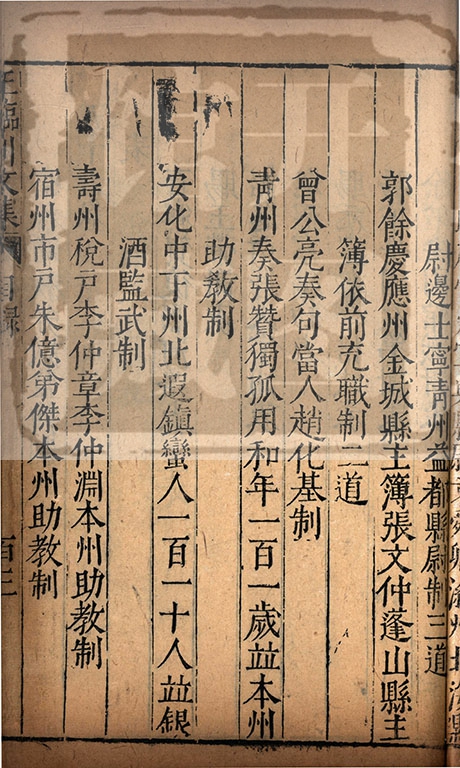 尉邊士寧青州益都縣尉制三道
郭餘慶應州金城縣主簿張文仲蓬山縣主
簿依前充職制二道
曾公亮奏句當人趙化基制
青州奏張贊獨孤用和年一百一歲並本州
助教制
安化中下州北遐鎮蠻人一百一十人並銀
酒監武制
壽州稅戶李仲章李仲淵本州助教制
宿州市戶朱億弟傑本州助教制
王臨川文集 目錄 百三